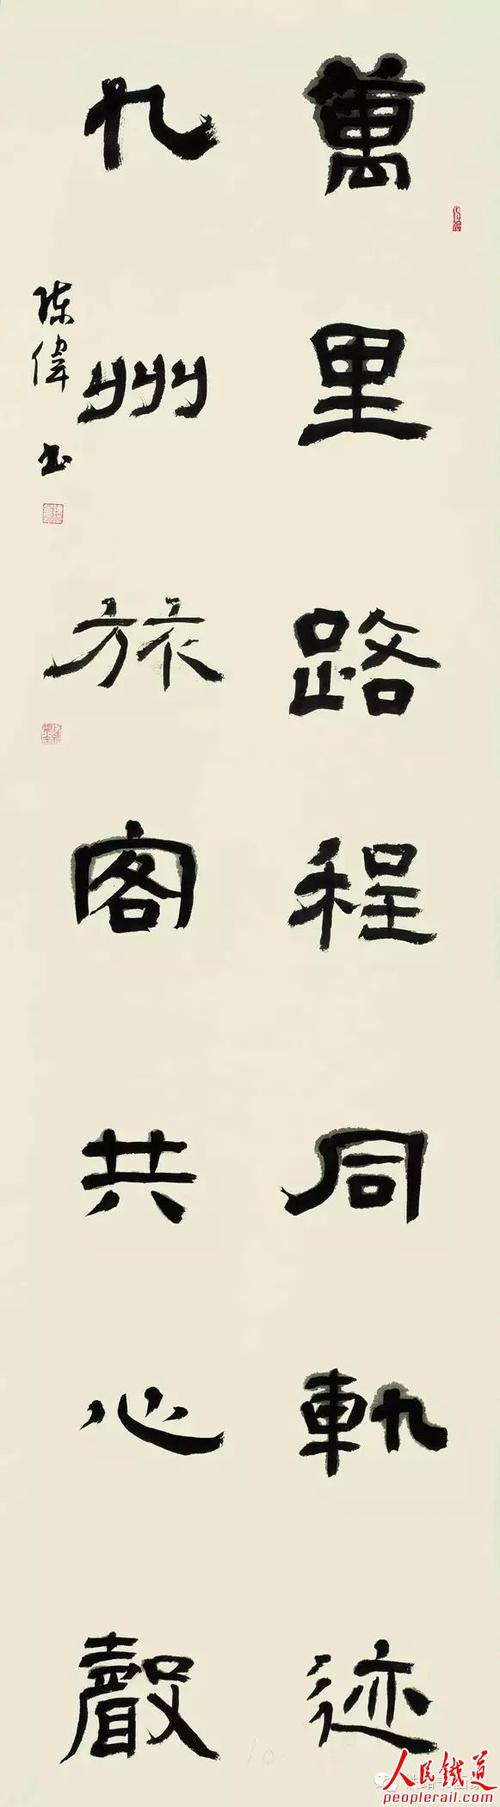 萬里路程同軌迹
九州旅客共心聲
陳偉書
人民鐵道
peoplerail.com